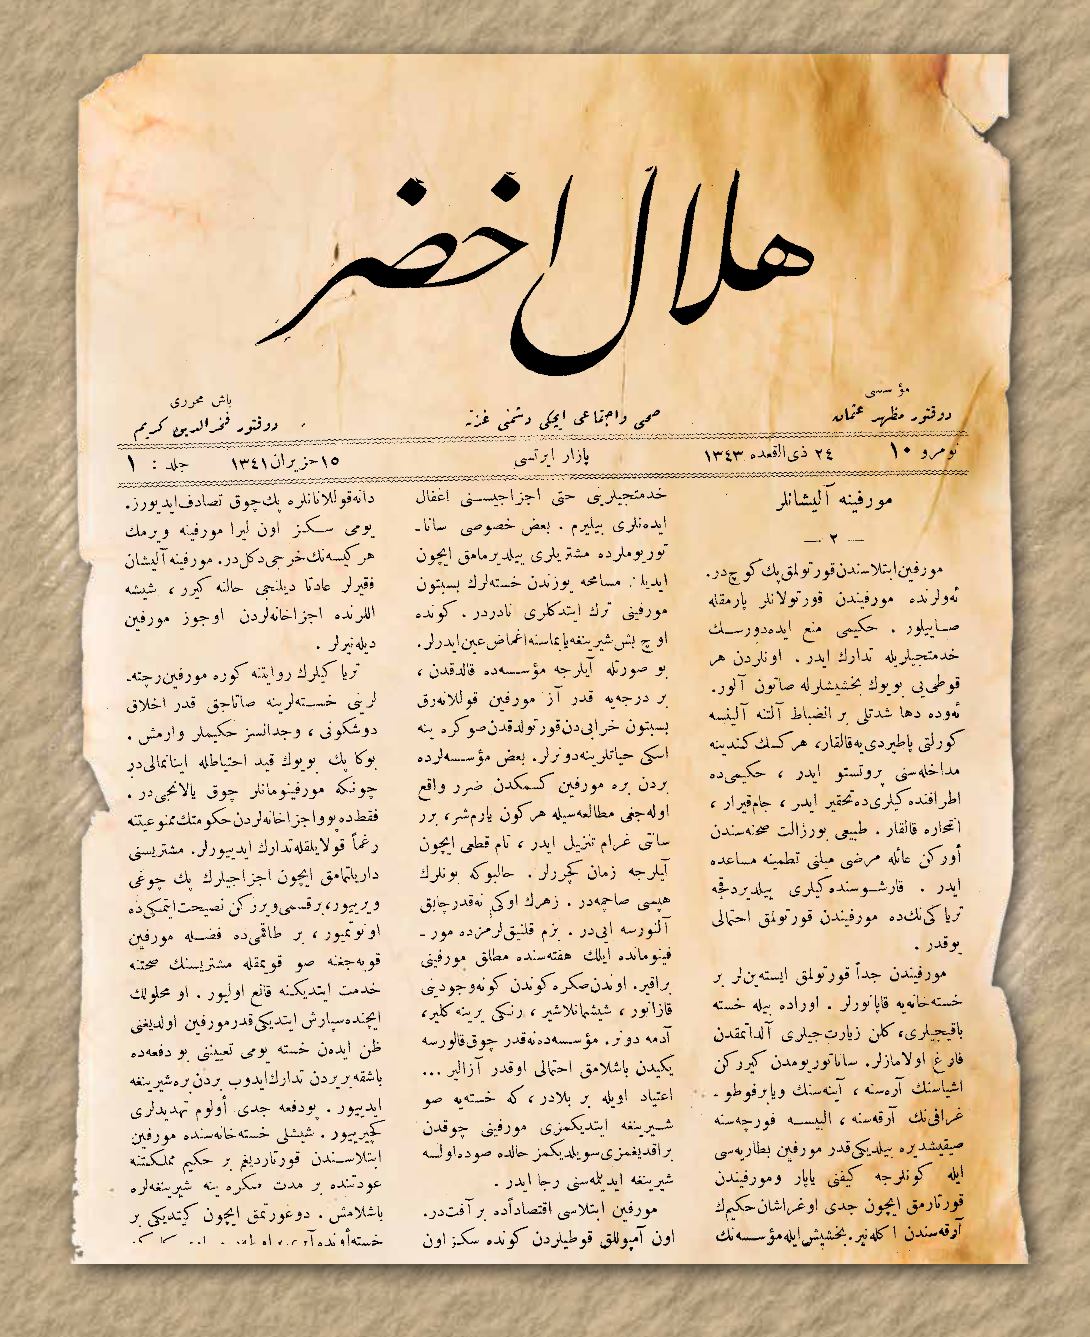 هلال اخضر
مؤسسى
دوقتور مظهر عثمان
صحى واجتماعى ايچكى دشمنى غزته
باش محررى
دوقتور فخرالدين كريم
نومرو ١٠
٢٤ ذى القعده ١٣٤٣
پازار ايرتسى
١٥ حزيران ١٣٤١
جلد : ١
مورفينه آليشانلر
— ٢ —
مورفين ابتلاسندن قورتولمق پك كوچ در.
ئه‌ولرنده مورفيندن قورتولانلر پارمقله
صاييلور . حكيمى منع ايده‌دورسك
خدمتجيلريله تدارك ايدر . اونلردن هر
قوطى‌يى بويوك بخشيشلرله صاتون آلور.
ئه‌وده دها شدتلى بر انضباط آلتنه آلينسه
كورلتى پاطيردى‌يه قالقار، هركسك كندينه
مداخله‌سنى پروتستو ايدر ، حكيمى‌ده
اطرافنده‌كيلرى‌ده تحقير ايدر ، جام قيرار ،
انتحاره قالقار . طبيعى بو رزالت صحنه‌سندن
أوركن عائله مرضى مبلنى تطمينه مساعده
ايدر . قارشوسنده‌كيلرى ييلديردقجه
ترياكى‌نك‌ده مورفيندن قورتولمق احتمالى
يوقدر .
مورفيندن جداً قورتولمق ايسته‌ين‌لر بر
خسته‌خانه‌يه قاپانورلر . اوراده بيله خسته
باقيجيلرى، كلن زيارت‌جيلرى آلداتمقدن
فارغ اولامازلر. ساناتوريومدن كيرركن
اشياسنك آره‌سنه ، آينه‌سنك ويا برفوطو -
غرافى‌نك آرقه‌سنه ، البيسه فورچه‌سنه
صيقيشديره بيلديكى قدر مورفين بطاريه‌سى
ايله كونلرجه كيفنى ياپار و مورفيندن
قورتارمق ايچون جدى اوغراشان حكيم‌ك
آرقه‌سندن اكله‌نير. بخشيش ايله مؤسسه‌نك
خدمتجيلرينى حتى اجزاجيسنى اغفال
ايده‌نلرى بيليرم . بعض خصوصى سانا-
توريوملرده مشتريلرى ييلديرمامق ايچون
ايديلن مسامحه يوزندن خسته‌لرك بسبتون
مورفينى ترك ايتدكلرى نادردر . كونده
اوچ بش شيرينغه ياپماسنه اغماض عين ايدرلر.
بو صورتله آيلرجه مؤسسه‌ده قالدقدن ،
بر درجه‌يه قدر آز مورفين قوللانه‌رق
بسبتون خرابى‌دن قورتولدقدن صوكره ينه
اسكى حياتلرينه دونرلر. بعض مؤسسه‌لرده
بردن بره مورفين كسمكدن ضرر واقع
اوله‌جغى مطالعه‌سيله هركون يارم‌شر، برر
سانتى غرام تنزيل ايدر ، تام قطعى ايچون
آيلرجه زمان كچرلر. حالبوكه بونلرك
هپسى صاچمه‌در. زهرك اوكى نه‌قدر چابق
آلنورسه ايى‌در . بزم قلنيق‌لرمزده مور-
فينومانده ايلك هفته‌سنده مطلق مورفينى
براقير. اوندن صكره كوندن كونه وجودينى
قازانور ، شيشمانلاشير ، رنكى يرينه كلير،
آدمه دونر. مؤسسه‌ده نه‌قدر چوق قالورسه
يكيدن باشلامق احتمالى اوقدر آزالير ...
اعتياد اويله بر بلادر ، كه خسته‌يه صو
شيرينغه ايتديكمزى مورفينى چوقدن
براقديغمزى سويلديكمز حالده صوده‌اولسه
شيرينغه ايديلمه‌سنى رجا ايدر .
مورفين ابتلاسى اقتصاداًده بر آفت‌در.
اون آمپوللق قوطيلردن كونده سكز اون
دانه قوللانانلره پك چوق تصادف ايديورز.
يومى سكز اون ليرا مورفينه ويرمك
هر كيسه‌نك خرجى دكل‌در. مورفينه آليشان
فقيرلر عادتا ديلنجى حالنه كيرر ، شيشه
اللرنده اجزاخانه‌لردن اوجوز مورفين
ديله‌نيرلر .
ترياكيلرك روايتنه كوره مورفين رچته-
لرينى خسته‌لرينه صاتاجق قدر اخلاق
دوشكونى ، وجدانسز حكيملر وارمش .
بوكا پك بويوك قيد احتياطله اينانمالى‌در
چونكه مورفينومانلر چوق يالانجى‌در .
فقط ده‌پوو اجزاخانه‌لردن حكومتك ممنوعيتنه
رغماً قولايلقله تدارك ايدييورلر. مشتريسنى
داريلتمامق ايچون اجزاجيلرك پك چوغى
ويرييور، بر قسمى ويرركن نصيحت ايتمكى‌ده
اونوتميور ، بر طاقمى‌ده فضله مورفين
قويه‌جغنه صو قويمقله مشتريسنك صحتنه
خدمت ايتديكنه قانع اوليور . او محلولك
ايچنده سپارش ايتديكى قدر مورفين اولديغنى
ظن ايده‌ن خسته يومى تعيينى بو دفعه‌ده
باشقه بر يردن تدارك ايدوب بردن بره شيرينغه
ايدييور . بودفعه جدى أولوم تهديدلرى
كچيرييور . شيشلى خسته‌خانه‌سنده مورفين
ابتلاسندن قورتارديغم بر حكيم مملكتنه
عودتنده بر مدت صكره ينه شيرينغه‌لره
باشلامش . دوغورتمق ايچون كيتديكى بر